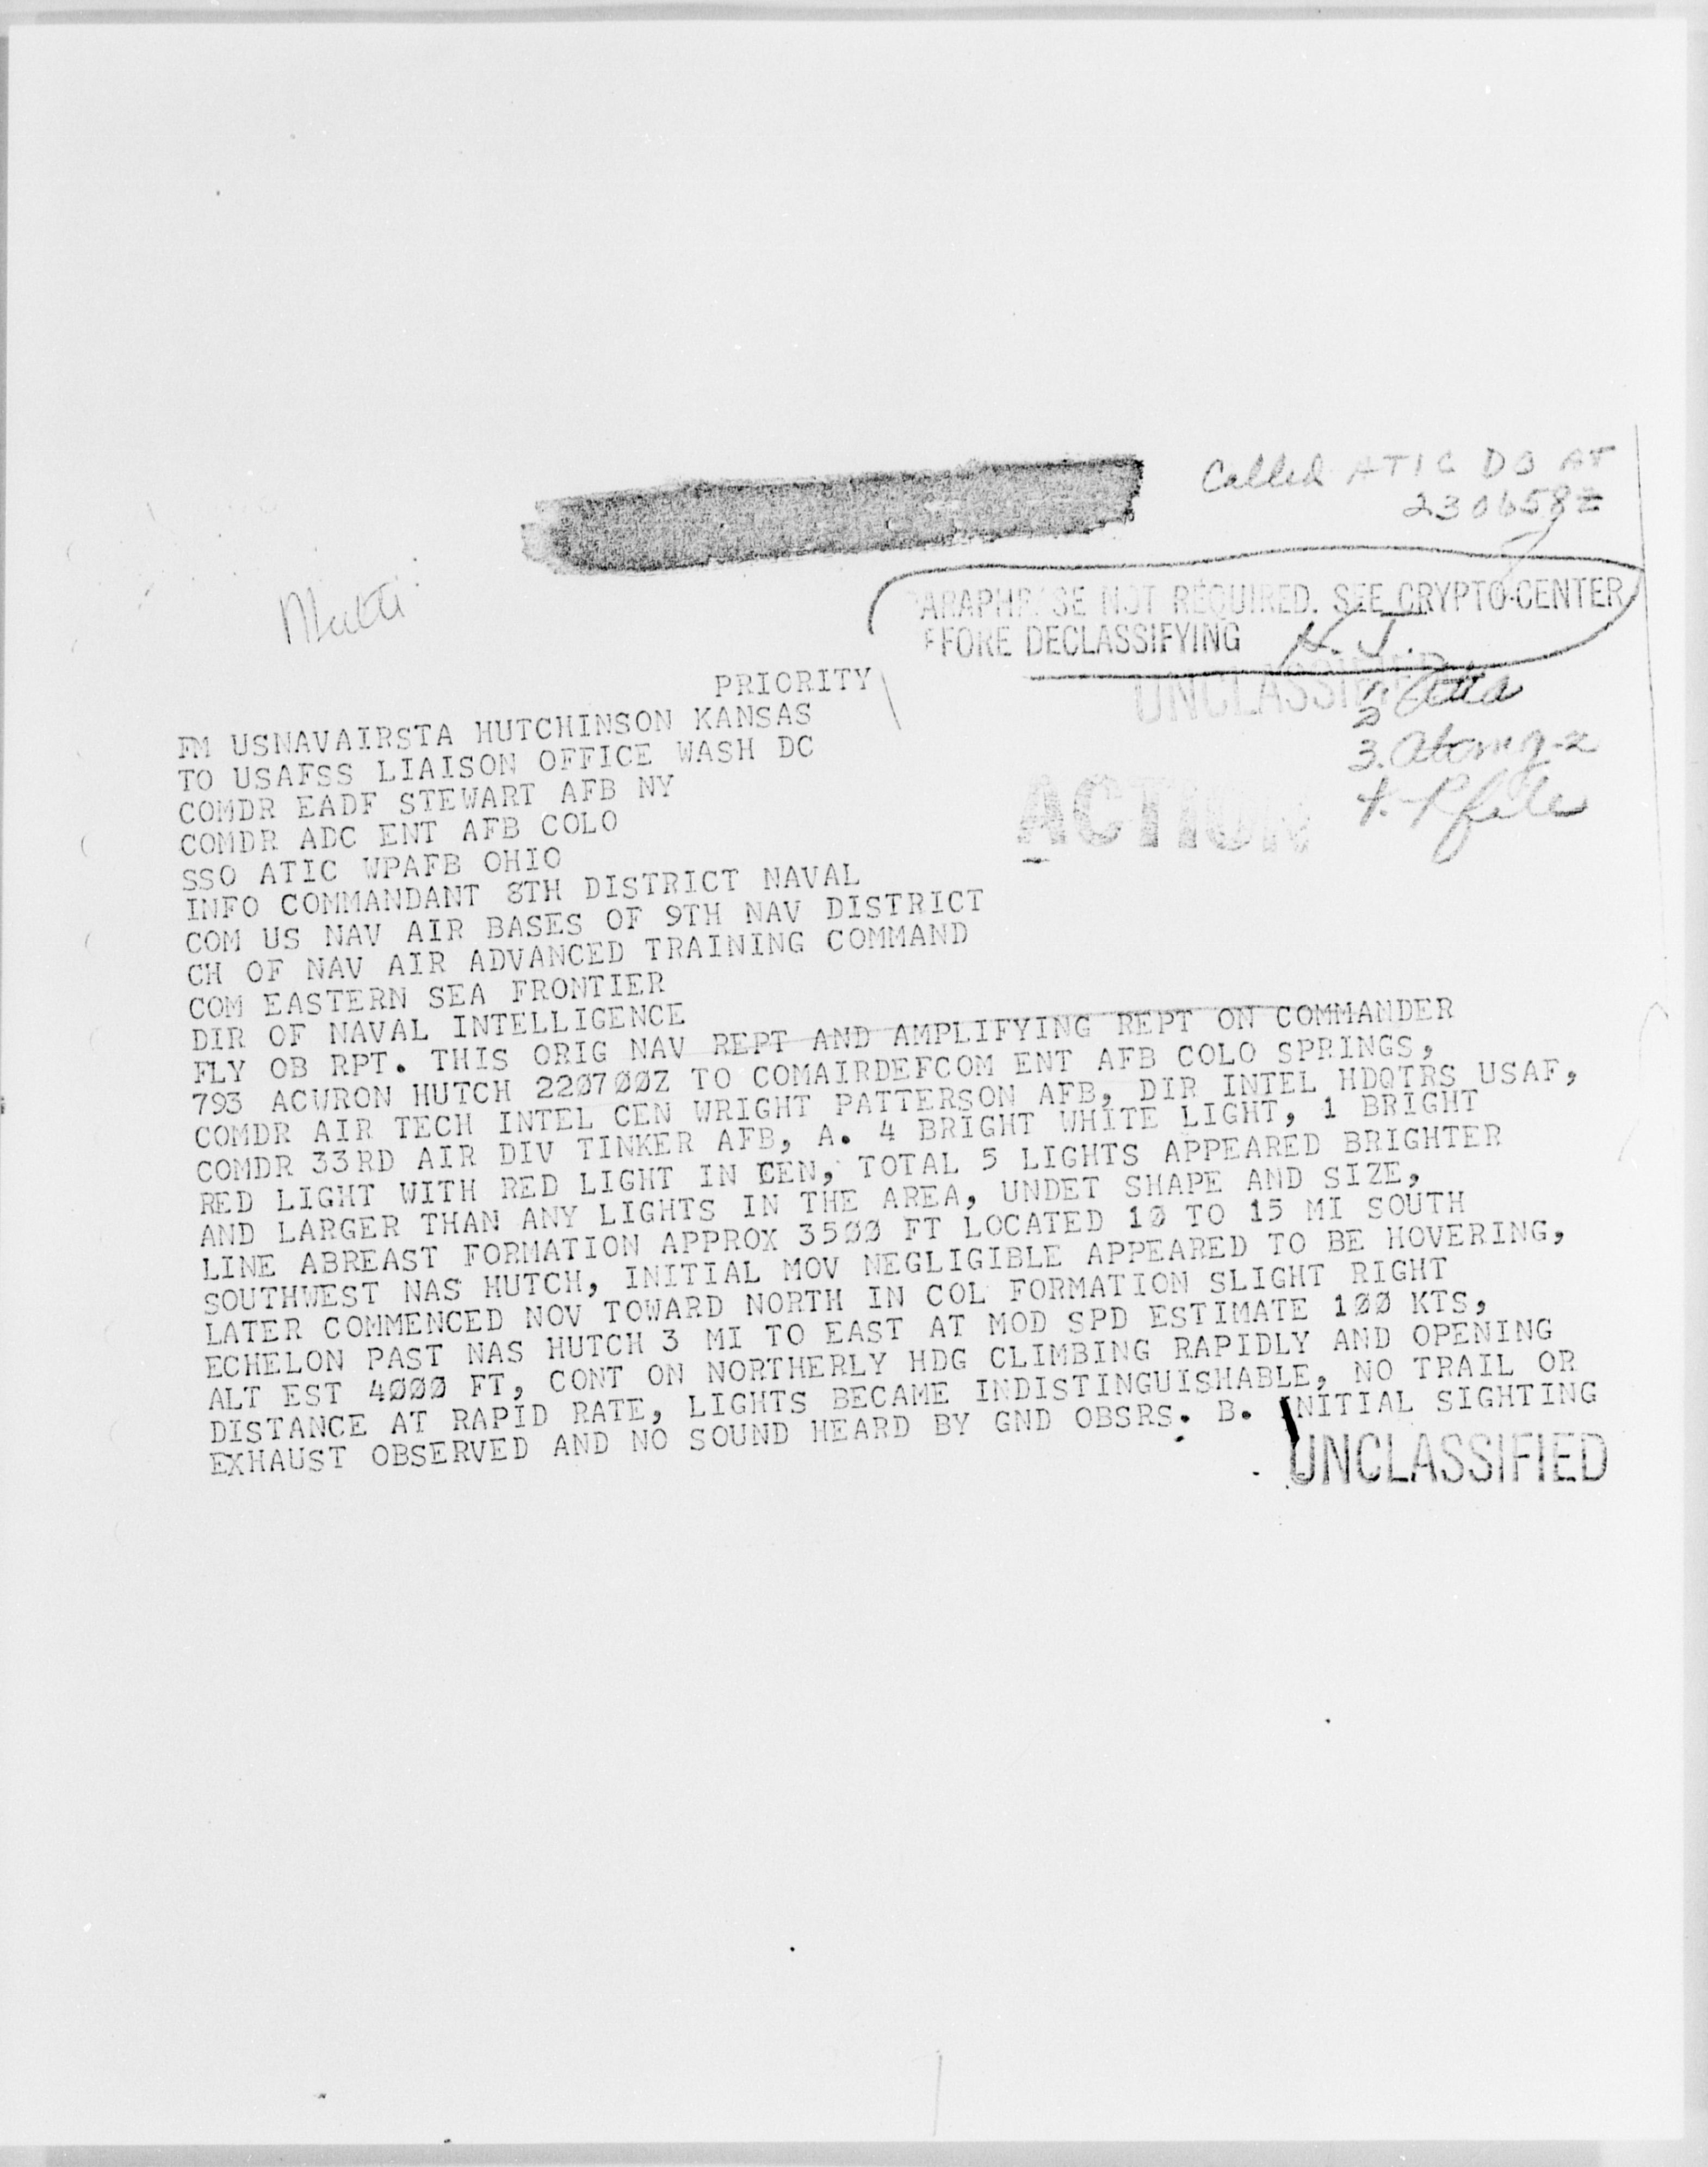 Called ATIC DO AT
230658Z
PARAPHRASE NOT REQUIRED. SEE CRYPTO-CENTER
EFORE DECLASSIFYING
UNCLASSIFIED
PRIORITY
3.
ACTION
file
FM USNAVAIRSTA HUTCHINSON KANSAS
TO USAFSS LIAISON OFFICE WASH DC
COMDR EADF STEWART AFB NY
COMDR ADC ENT AFB COLO
SSO ATIC WPAFB OHIO
INFO COMMANDANT 8TH DISTRICT NAVAL
COM US NAV AIR BASES OF 9TH NAV DISTRICT
CH OF NAV AIR ADVANCED TRAINING COMMAND
COM EASTERN SEA FRONTIER
DIR OF NAVAL INTELLIGENCE
FLY OB RPT. THIS ORIG NAV REPT AND AMPLIFYING REPT ON COMMANDER
793 ACWRON HUTCH 220700Z TO COMAIRDEFCOM ENT AFB COLO SPRINGS,
COMDR AIR TECH INTEL CEN WRIGHT PATTERSON AFB, DIR INTEL HDQTRS USAF,
COMDR 33RD AIR DIV TINKER AFB, A. 4 BRIGHT WHITE LIGHT, 1 BRIGHT
RED LIGHT WITH RED LIGHT IN CEN, TOTAL 5 LIGHTS APPEARED BRIGHTER
AND LARGER THAN ANY LIGHTS IN THE AREA, UNDET SHAPE AND SIZE,
LINE ABREAST FORMATION APPROX 3500 FT LOCATED 10 TO 15 MI SOUTH
SOUTHWEST NAS HUTCH, INITIAL MOV NEGLIGIBLE APPEARED TO BE HOVERING,
LATER COMMENCED NOV TOWARD NORTH IN COL FORMATION SLIGHT RIGHT
ECHELON PAST NAS HUTCH 3 MI TO EAST AT MOD SPD ESTIMATE 100 KTS,
ALT EST 4000 FT, CONT ON NORTHERLY HDG CLIMBING RAPIDLY AND OPENING
DISTANCE AT RAPID RATE, LIGHTS BECAME INDISTINGUISHABLE, NO TRAIL OR
EXHAUST OBSERVED AND NO SOUND HEARD BY GND OBSRS. B. INITIAL SIGHTING
UNCLASSIFIED